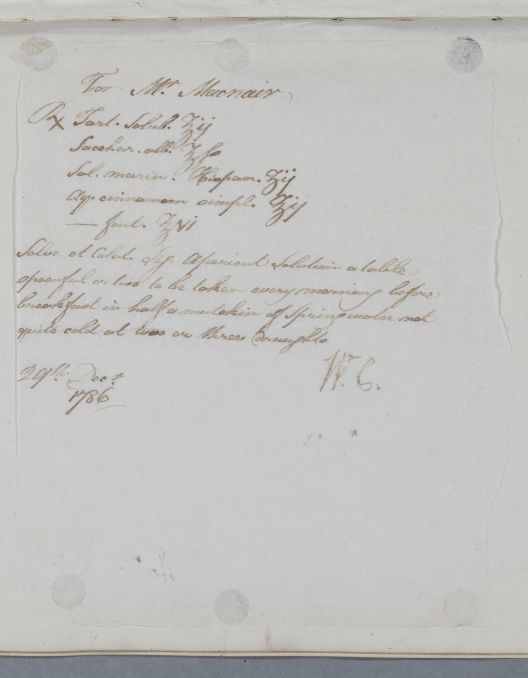 For Mr. Macnair
℞ Tart. Solub. ℥ij
Sacchar. alb. ℥ſs
Sal. marin. Hispan. ʒij
Aq. cinnamom simpl. ℥ij
— font. ℥vi
Solve et Cola. Sig. Aperient Solution a table
spoonful or two to be taken every morning before
breakfast in half a mutchkin of Spring water not
quite cold at two or three draughts
29th. Decr.
1786
W. C.